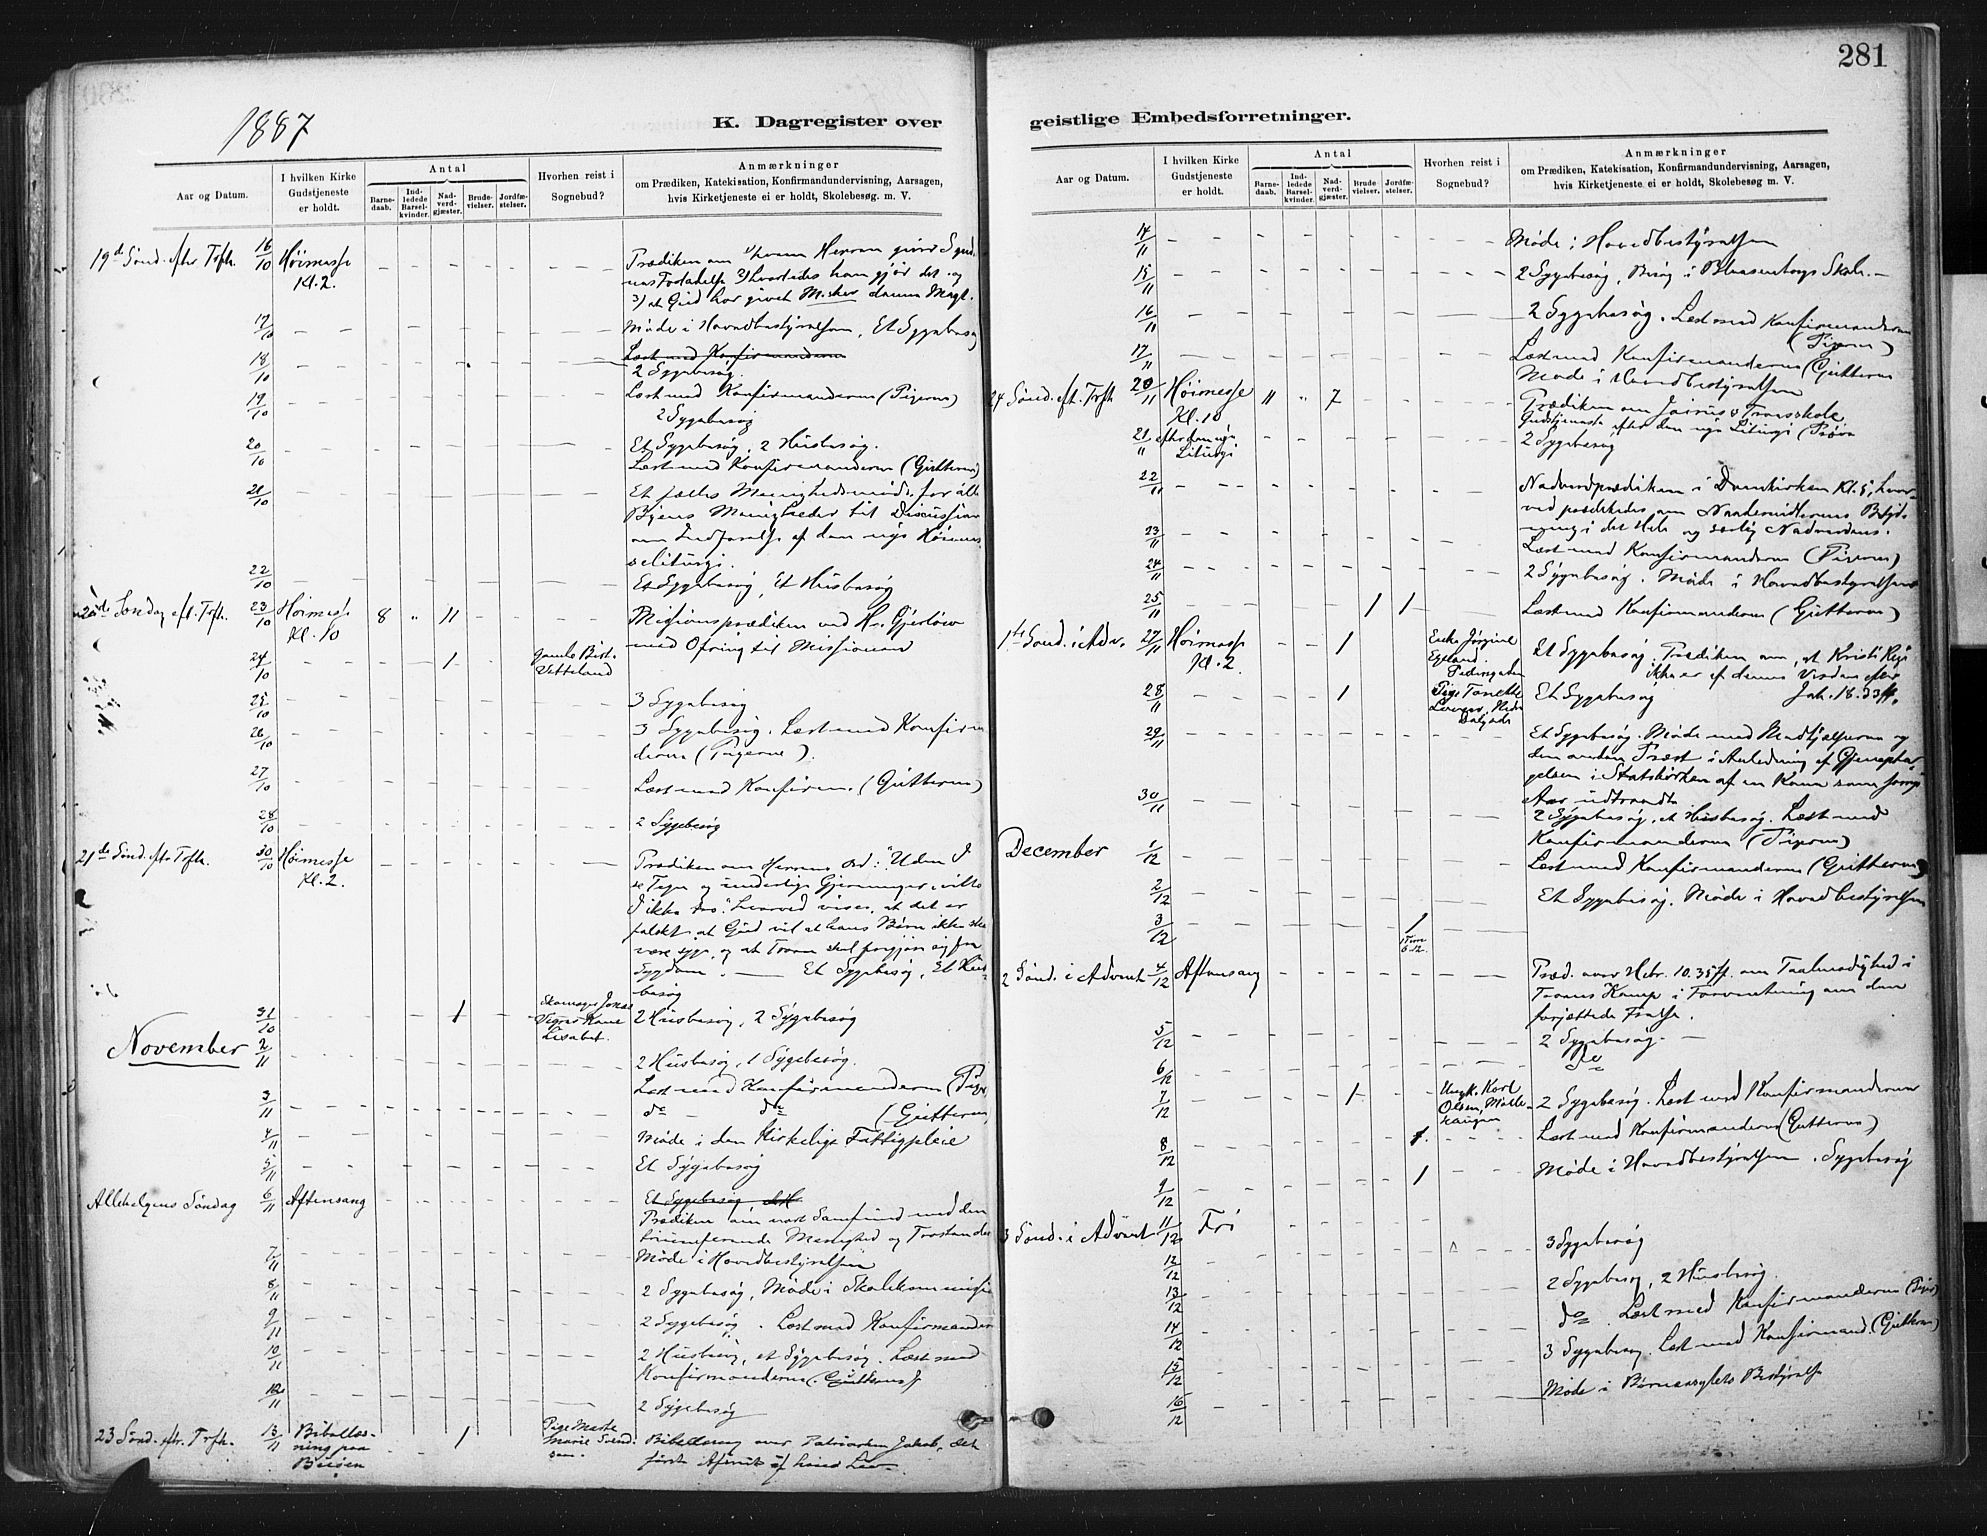 281
1887
K. Dagregister over
geistlige Embedsforretninger.
Aar og Datum.
I hvilken Kirke Gudstjeneste er holdt.
Antal
Barne-daab.
Ind-ledede Barsel-kvinder.
Nad-verd-gjæster.
Brude-vielser.
Jordfæ-stelser.
Hvorhen reist i Sognebud?
Anmærkninger
om Prædiken, Katekisation, Konfirmandundervisning, Aarsagen,
hvis Kirketjeneste ei er holdt, Skolebesøg. m. V.
19de Sönd. efter Trfh. 16/10 Höimesse Kl. 2.
3) at Gud har givet Msker denne Magt.
17/10 Møde i Hovedbestyrelsen, Et Sygebesøg
18/10 Læst med Konfirmanderne
2 Sygebesög.
19/10 Læst med Konfirmanderne (Pigerne)
2 Sygebesög
20/10 Et Sygebesøg, 2 Husbesøg.
Læst med Konfirmanderne (Gutterne)
21/10 Et fælles Menighedsmøde for alle
Byens Menigheder til Discussion
om Indførelse af den nye Höimes-
seliturgi.
22/10 Et Sygebesøg, Et Husbesøg
Søndag eft. Trfh. 23/10 Höimesse Kl. 10 8 " 11 Missionsprædiken ved Hr. Gjerløw
med Ofring til Missionen
24/10 1
25/10 3 Sygebesög
26/10 3 Sygebesög. Læst med Konfirman
derne (Pigerne).
27/10 Læst med Konfirm. (Gutterne)
28/10 2 Sygebesög
21de Sönd. eftr Trfh. 30/10 Höimesse Kl. 2. Prædiken om Herrens Ord: "Uden I
se Tegn og underlige Gjerninger, ville
I ikke tro". Hvorved vises, at det er
falskt, at Gud vil at hans Börn ikke skal
være syge, og at Troen skal
Sygdom. — Et Sygebesøg, Et Hus-
besøg
31/10 1 2 Husbesøg, 2 Sygebesøg
November 2/11 2 Husbesøg, 1 Sygebesög.
Læst med Konfirmanderne (Pige
3/11 do — do (Gutterne)
4/11 Møde i den kirkelige Fattigpleie
5/11 Et Sygebesøg
Allehelgens Søndag 6/11 Aftensang Et Sygebesøg
Prædiken om vort Samfund med den
triumferende Menighed og
7/11 Møde i Hovedbestyrelsen
8/11 2 Sygebesøg, Møde i Skolekommissio
9/11 2 Sygebesøg. Læst med Konfirmander
10/11 2 Husbesøg, et Sygebesøg. Læst med
Konfirmanderne (Gutterne).
12/11 2 Sygebesøg
23 Sönd. eftr. Trfh. 13/11 Bibellæs-
ning paa
Buøen 1 Bibellæsning over Patriarken Jakob, det
første Afsnit af hans Liv.
Aar og Datum.
I hvilken Kirke Gudstjeneste er holdt.
Antal
Barne-daab.
Ind-ledede Barsel-kvinder.
Nad-verd-gjæster.
Brude-vielser.
Jordfæ-stelser.
Hvorhen reist i Sognebud?
Anmærkninger
om Prædiken, Katekisation, Konfirmandundervisning, Aarsagen,
hvis Kirketjeneste ei er holdt, Skolebesøg m. V.
14/11 Møde i Hovedbestyrelsen
15/11 2 Sygebesøg, Besøg i Blaasenborgs Skole.
16/11 2 Sygebesøg. Læst med Konfirmanderne
(Pigerne)
17/11 Læst med Konfirmanderne (Gutterne
Møde i Hovedbestyrelsen
24 Sönd. eft. Trfh 20/11 Höimesse Kl. 10 efter den nye Liturgi " " 7 Prædiken om Jairus's Troesskole
Gudstjeneste efter den nye Liturgi (Prøve
21/11 2 Sygebesøg
22/11 Nadverdprædiken i Domkirken Kl. 5, hvor-
ved prædikedes om Naademidlernes Betyd-
ning i det Hele og særlig Nadverdens.
23/11 Læst med Konfirmanderne (Pigerne)
24/11 2 Sygebesøg. Møde i Hovedbestyrelsen
25/11 1 1 Læst med Konfirmanderne (Gutterne)
1ste Sönd. i Adv. 27/11 Höimesse Kl. 2. 1 Et Sygebesøg. Prædiken om, at Kristi Rige
ikke er af denne Verden efter
Joh. 18. 33ff.
28/11 1 Et Sygebesøg
29/11 Et Sygebesøg. Møde med Medhjælperne og
den anden Præst i Anledning af Gjenopta-
gelsen i Statskirken af en Kone som forrige
Aar udtraadte
30/11 2 Sygebesøg, et Husbesøg. Læst med
Konfirmanderne (Pigerne)
December 1/12 Læst med Konfirmanderne (Gutterne)
2/12 Et Sygebesøg. Møde i Hovedbestyrelsen
3/12 1
2 Sönd. i Advent 4/12 Aftensang Præd. over Hebr. 10. 35ff. om Taalmodighed i
Troens Kamp i Forventning om den
forjættede Frelse.
5/12 2 Sygebesøg.
6/12 do
7/12 1 Ungk. Karl
Olsen, 2 Sygebesøg. Læst med Konfirmanderne
8/12 1. Læst med Konfirmanderne (Gutterne)
9/12 1 Møde i Hovedbestyrelsen. Sygebesøg
3 Sönd. i Advent 11/12 Fri
12/12 3 Sygebesøg
13/12 2 Sygebesøg, 2 Husbesøg.
14/12 do. Læst med Konfirmanderne (Piger)
15/12 3 Sygebesøg. Læst med Konfirmand. (Gutterne)
16/12 Møde i Børneasylets Bestyrelse